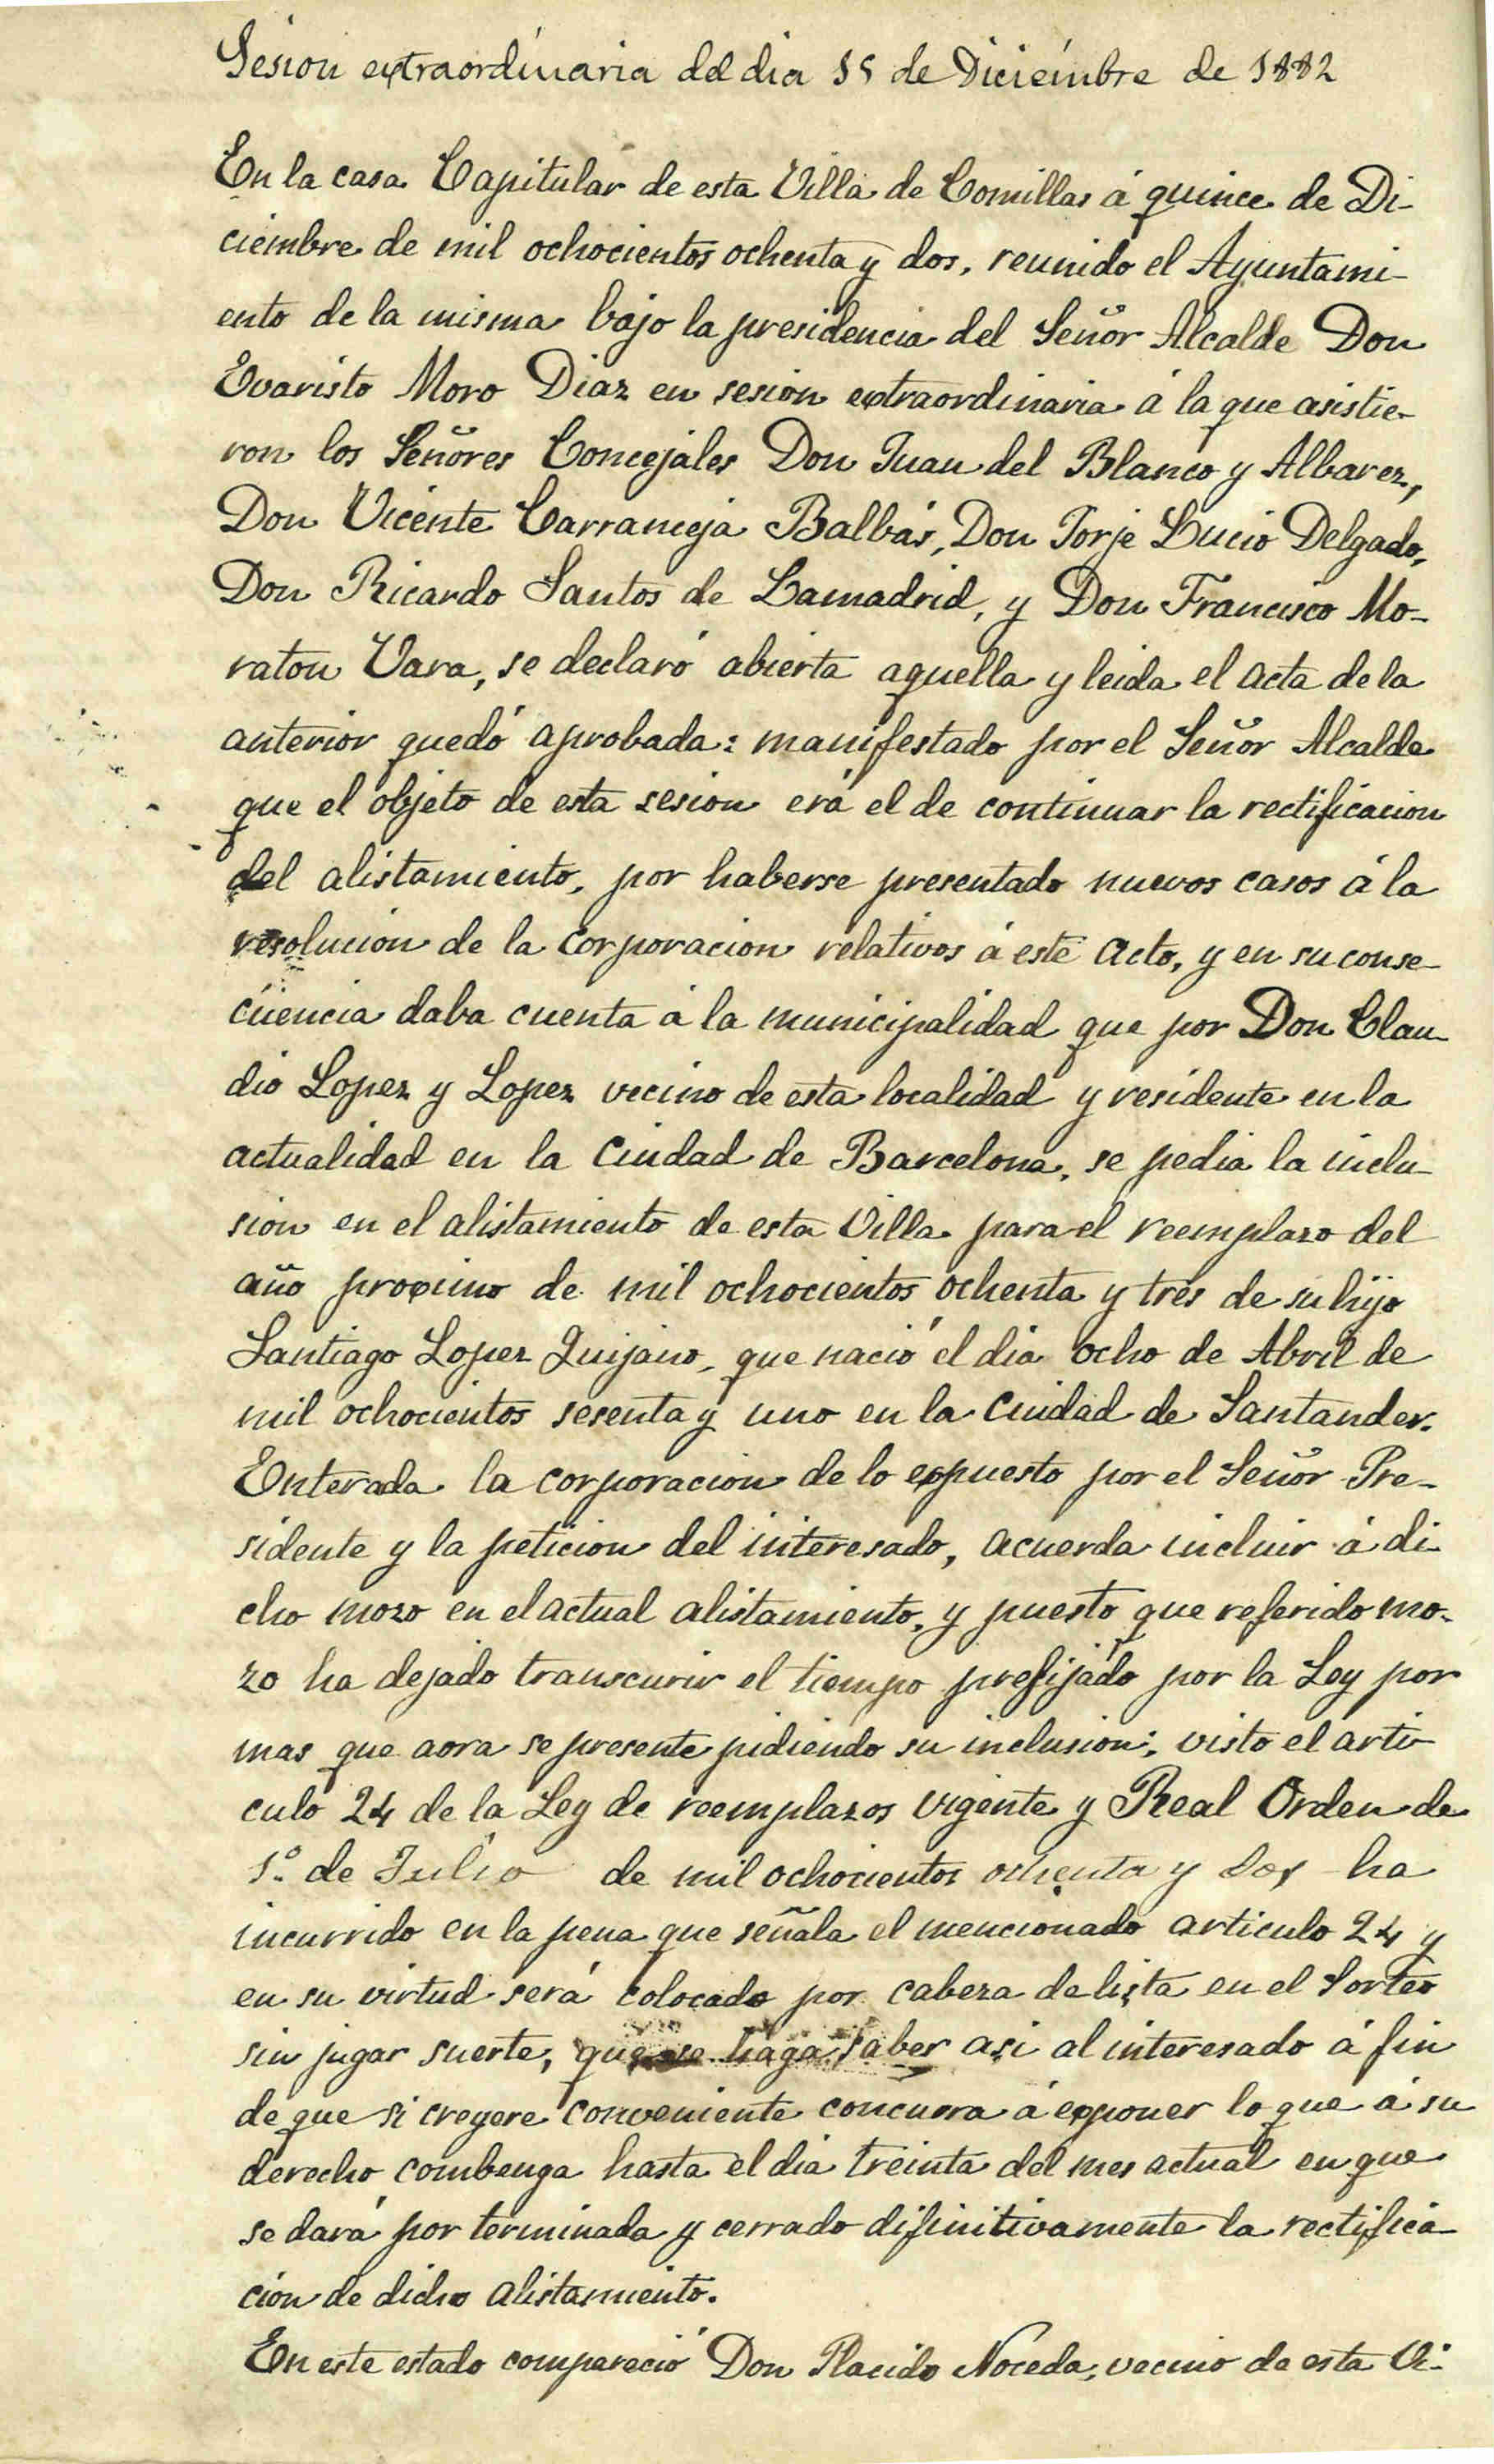 Sesion extraordinaria del dia 15 de Diciembre de 1882
En la casa Capitular de esta Villa de Comillas á quince de Di-
ciembre de mil ochocientos ochenta y dos, reunido el Ayuntami-
ento de la misma bajo la presidencia del Señor Alcalde Don
Evaristo Moro Diaz en sesion extraordinaria á la que asistie-
ron los Señores Concejales Don Juan del Blanco y Albarez,
Don Vicente Carranceja Balbás, Don Jorje Lucio Delgado,
Don Ricardo Santos de Lamadrid, y Don Francisco Mo-
raton Vara, se declaró abierta aquella y leida el acta de la
anterior quedó aprobada: manifestado por el Señor Alcalde
que el objeto de esta sesion erá el de continuar la rectificacion
del alistamiento, por haberse presentado nuevos casos á la
resolucion de la corporacion relativos á este acto, y en su conse-
cüencia daba cuenta á la municipalidad que por Don Clau-
dio Lopez y Lopez vecino de esta localidad y residente en la
actualidad en la Ciudad de Barcelona, se pedia la inclu-
sion en el alistamiento de esta Villa para el reemplazo del
año proximo de mil ochocientos ochenta y tres de su hijo
Santiago Lopez Quijano, que nació el dia ocho de Abril de
mil ochocientos sesenta y uno en la Ciudad de Santander.
Enterada la corporacion de lo expuesto por el Señor Pre-
sidente y la peticion del interesado, acuerda incluir á di-
cho mozo en el actual alistamiento, y puesto que referido mo-
zo ha dejado transcurir el tiempo prefijado por la Ley por
mas que aora se presente pidiendo su inclusion; visto el arti-
culo 24 de la Ley de reemplazos vigente y Real Orden de
1º de Julio de mil ochocientos ochenta y dos ha
incurrido en la pena que señala el mencionado articulo 24 y
en su virtud será colocado por cabeza de lista en el Sorteo
sin jugar suerte, que se haga saber asi al interesado á fin
de que si creyere conveniente concurra á exponer lo que á su
derecho combenga hasta el dia treinta del mes actual en que
se dará por terminada y cerrado difinitivamente la rectifica-
cion de dicho alistamiento.
En este estado compareció Don Placido Noceda, vecino de esta Vi-